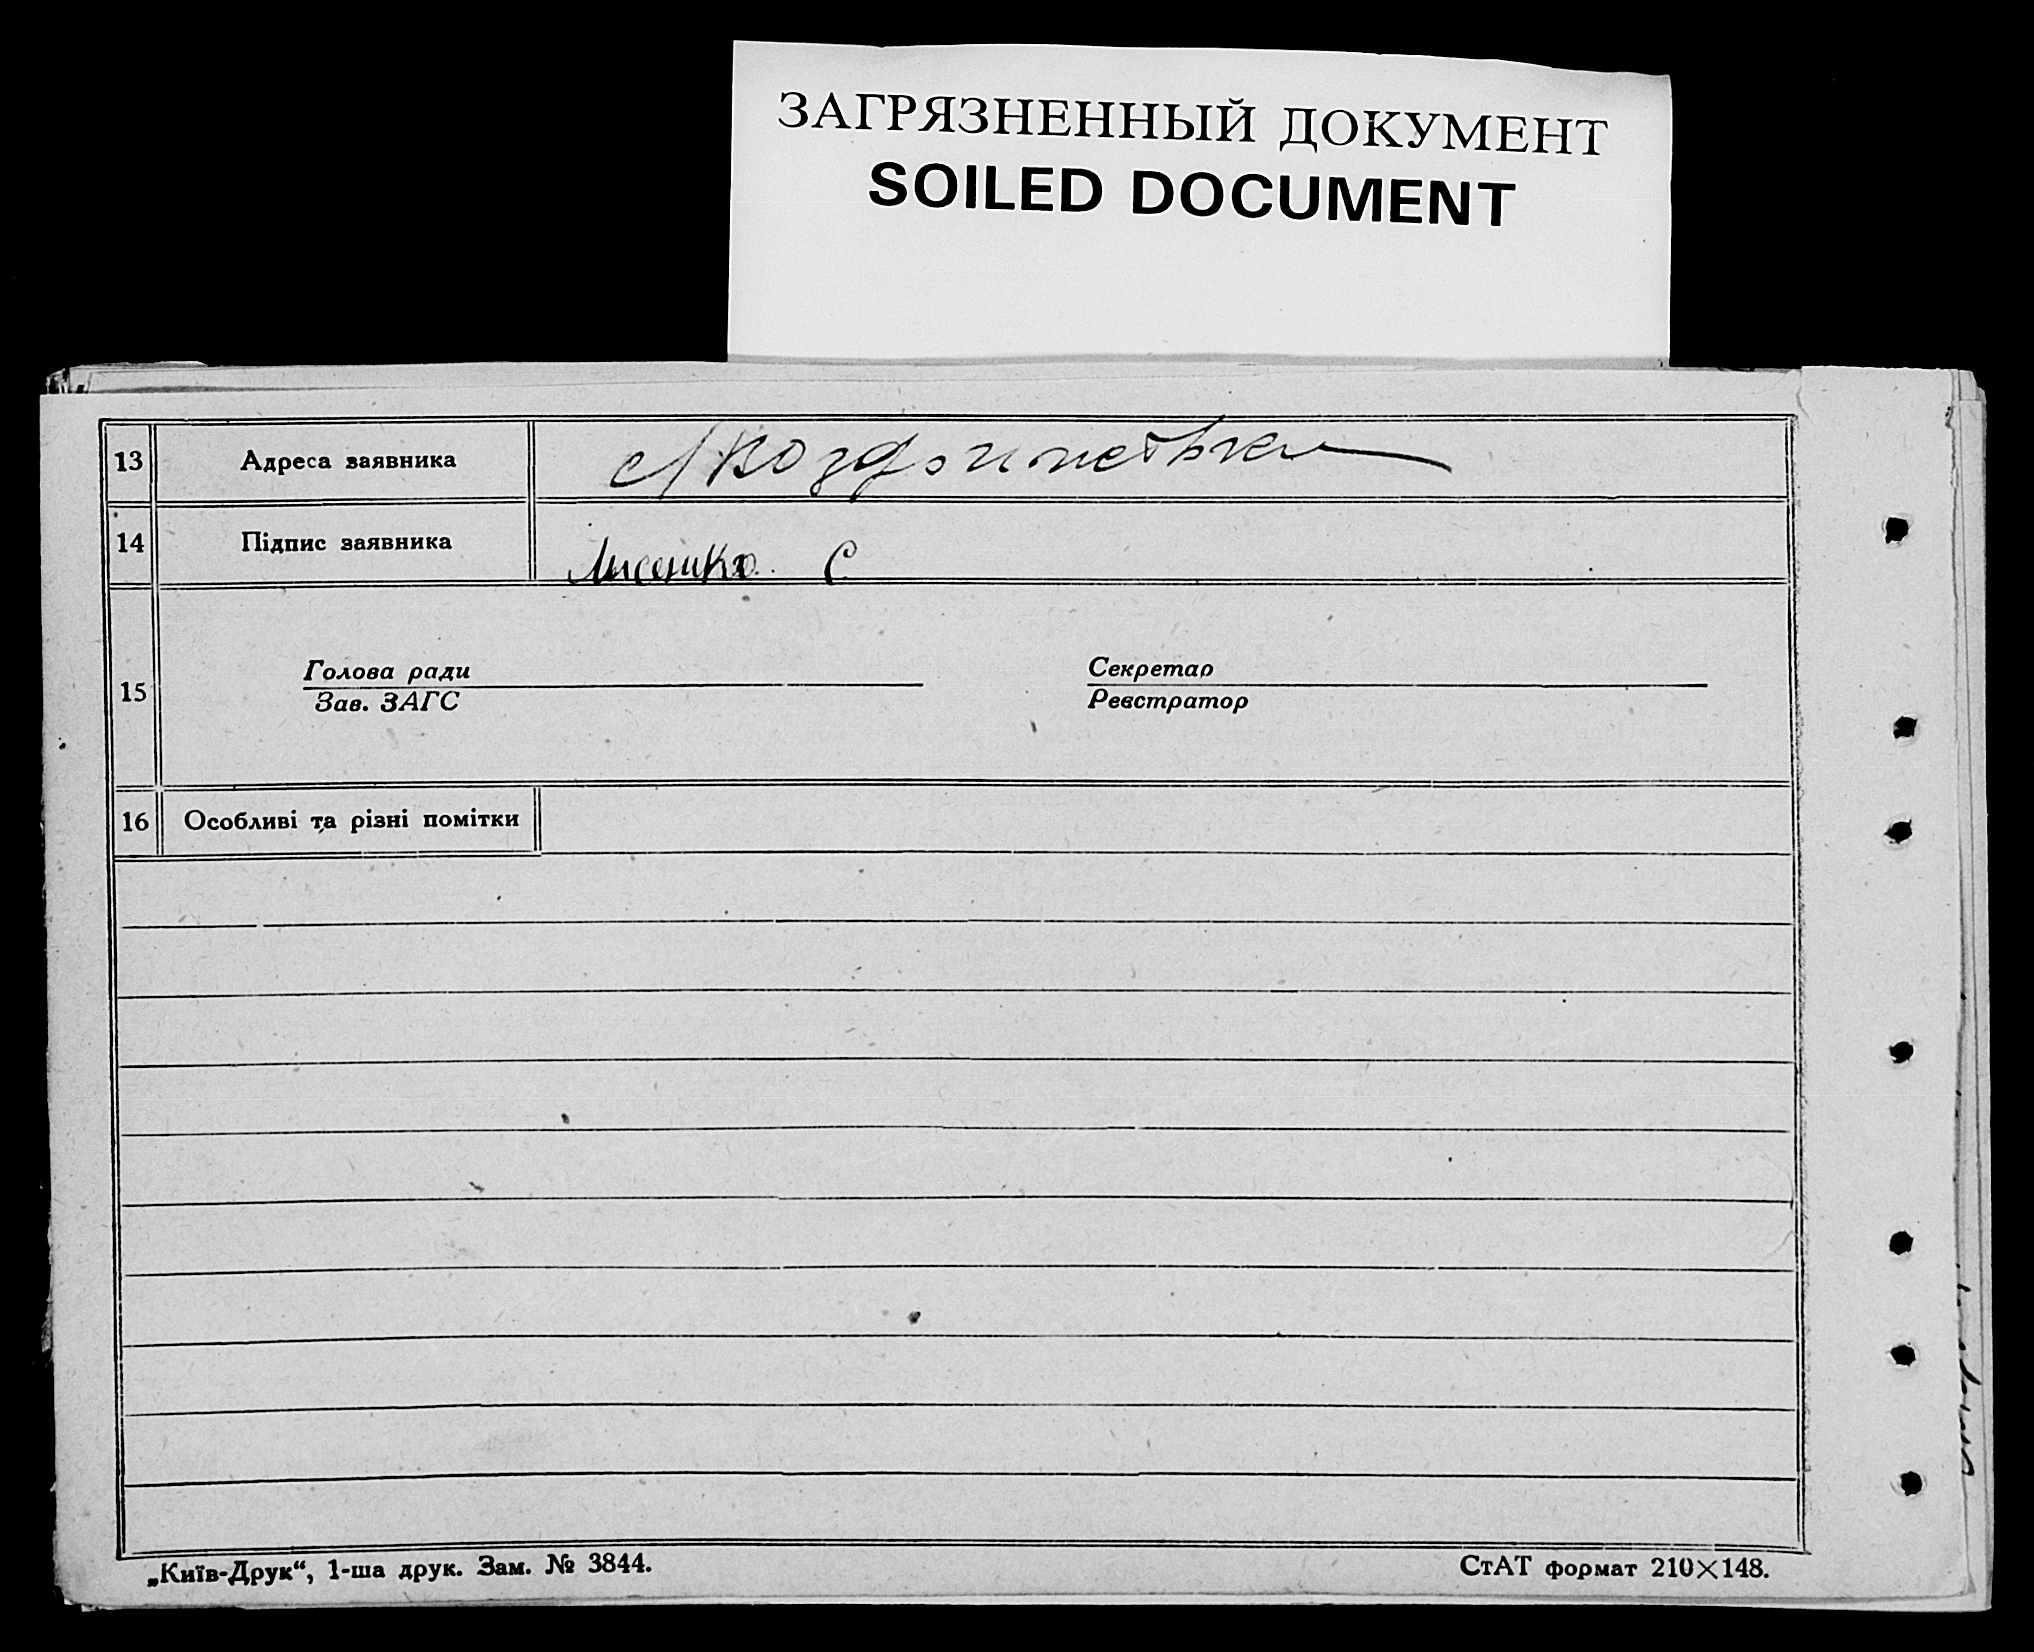 ЗАГРЯЗНЕННЫЙ ДОКУМЕНТ
SOILED DOCUMENT
13 Адреса заявника
14 Підпис заявника Лисенко С
15
Голова ради Секретар
Зав. ЗАГС Реєстратор
16 Особливі та різні помітки
„Київ-Друк“, 1-ша друк. Зам. № 3844. СтАТ формат 210×148.